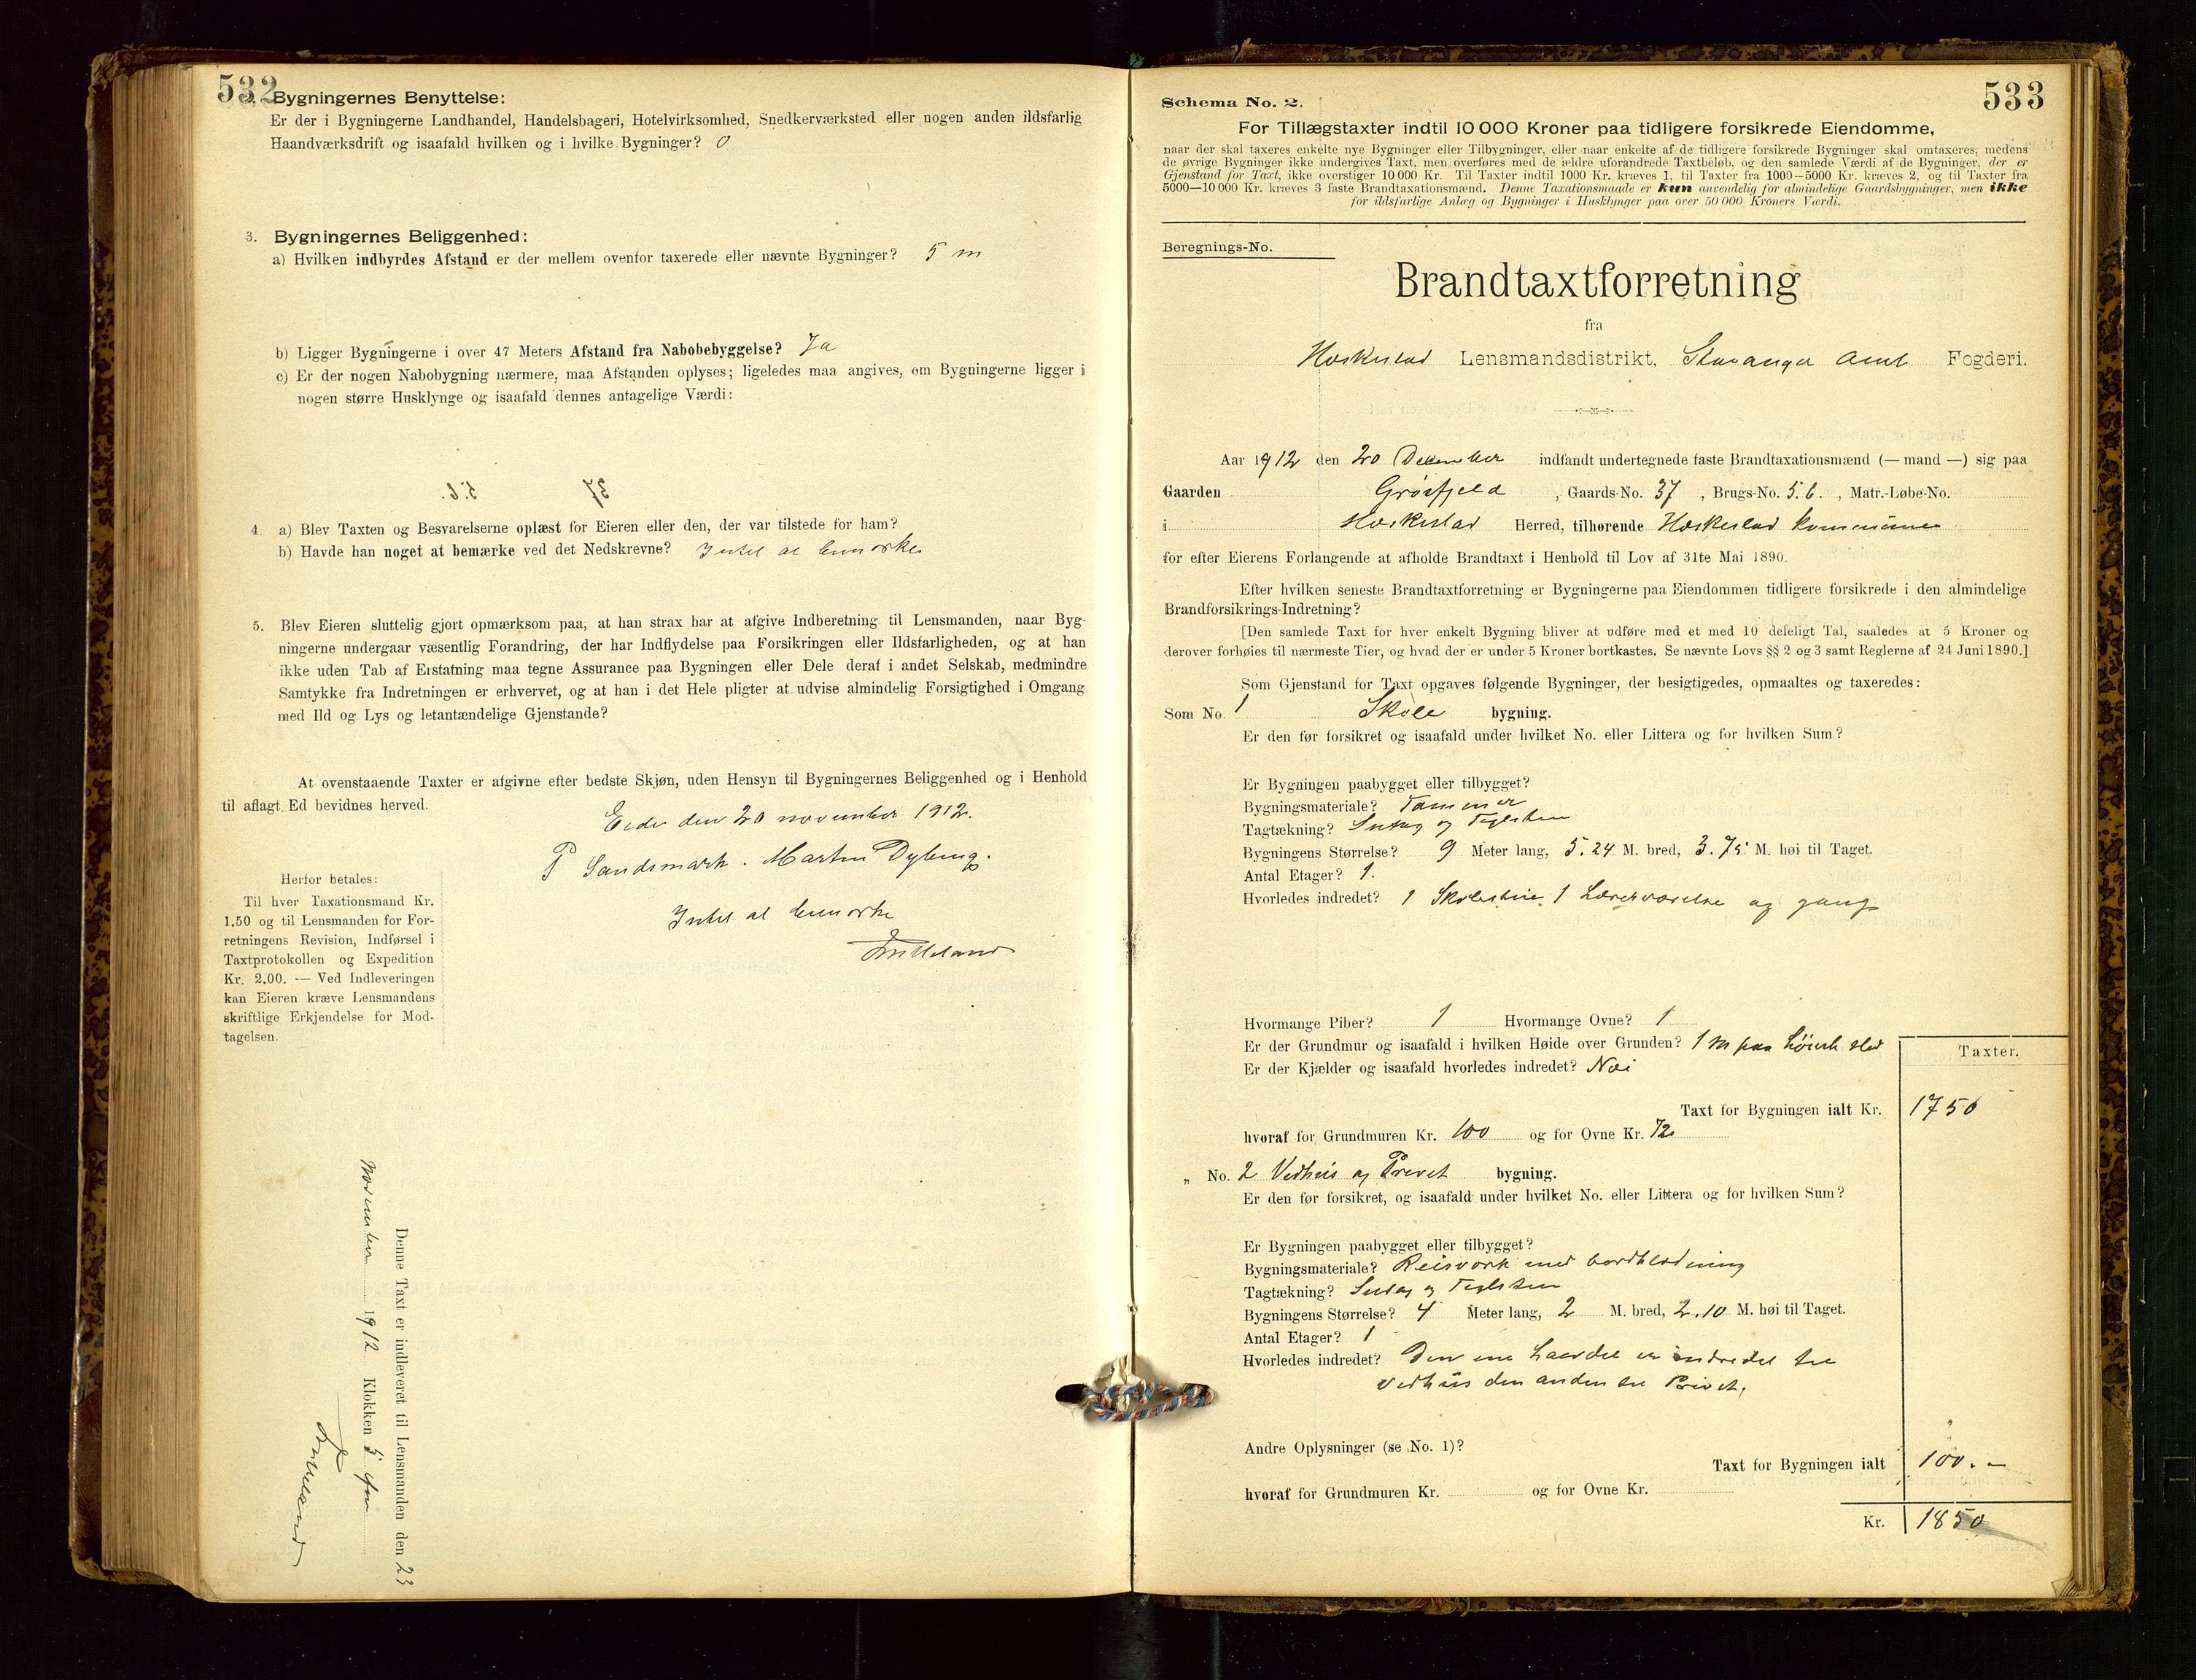 532
2. Bygningernes Benyttelse:
Er der i Bygningerne Landhandel, Handelsbageri, Hotelvirksomhed, Snedkerværksted eller nogen anden ildsfarlig
Haandværksdrift og isaafald hvilken og i hvilke Bygninger? 0
3. Bygningernes Beliggenhed:
a) Hvilken indbyrdes Afstand er der mellem ovenfor taxerede eller nævnte Bygninger? 5 m
b) Ligger Bygningerne i over 47 Meters Afstand fra Nabobebyggelse? Ja
c) Er der nogen Nabobygning nærmere, maa Afstanden oplyses; ligeledes maa angives, om Bygningerne ligger i
nogen større Husklynge og isaafald dennes antagelige Værdi:
4. a) Blev Taxten og Besvarelserne oplæst for Eieren eller den, der var tilstede for ham?
b) Havde han noget at bemærke ved det Nedskrevne? Intet at bemærke
5. Blev Eieren sluttelig gjort opmærksom paa, at han strax har at afgive Indberetning til Lensmanden, naar Byg-
ningerne undergaar væsentlig Forandring, der har Indflydelse paa Forsikringen eller Ildsfarligheden, og at han
ikke uden Tab af Erstatning maa tegne Assurance paa Bygningen eller Dele deraf i andet Selskab, medmindre
Samtykke fra Indretningen er erhvervet, og at han i det Hele pligter at udvise almindelig Forsigtighed i Omgang
med Ild og Lys og letantændelige Gjenstande?
At ovenstaaende Taxter er afgivne efter bedste Skjøn, uden Hensyn til Bygningernes Beliggenhed og i Henhold
til aflagt Ed bevidnes herved.
Eide den 20 november 1912.
P Sandsmark. Martin Dybing.
Intet at bemærke
Herfor betales:
Til hver Taxationsmand Kr.
1.50 og til Lensmanden for For-
retningens Revision, Indførsel i
Taxtprotokollen og Expedition
Kr. 2.00. — Ved Indleveringen
kan Eieren kræve Lensmandens
skriftlige Erkjendelse for Mod-
tagelsen.
Denne Taxt er indleveret til Lensmanden den 23
November 1912 Klokken 5 efm
533
Schema No. 2.
For Tillægstaxter indtil 10 000 Kroner paa tidligere forsikrede Eiendomme,
naar der skal taxeres enkelte nye Bygninger eller Tilbygninger, eller naar enkelte af de tidligere forsikrede Bygninger skal omtaxeres, medens
de øvrige Bygninger ikke undergives Taxt, men overføres med de ældre uforandrede Taxtbeløb, og den samlede Værdi af de Bygninger, der er
Gjenstand for Taxt, ikke overstiger 10 000 Kr. Til Taxter indtil 1000 Kr. kræves 1, til Taxter fra 1000—5000 Kr. kræves 2, og til Taxter fra
5000—10 000 Kr. kræves 3 faste Brandtaxationsmænd. Denne Taxationsmaade er kun anvendelig for almindelige Gaardsbygninger, men ikke
for ildsfarlige Anlæg og Bygninger i Husklynger paa over 50 000 Kroners Værdi.
Beregnings-No.
Brandtaxtforretning
fra
Heskestad Lensmandsdistrikt, Stavanger Amt Fogderi.
Aar 1912 den 20 December indfandt undertegnede faste Brandtaxationsmænd (— mand —) sig paa
Gaarden Grøsfjeld , Gaards-No. 37 , Brugs-No. 5.6. , Matr.-Løbe-No.
i Heskestad Herred, tilhørende Heskestad kommune
for efter Eierens Forlangende at afholde Brandtaxt i Henhold til Lov af 31te Mai 1890.
Efter hvilken seneste Brandtaxtforretning er Bygningerne paa Eiendommen tidligere forsikrede i den almindelige
Brandforsikrings-Indretning?
[Den samlede Taxt for hver enkelt Bygning bliver at udføre med et med 10 deleligt Tal, saaledes at 5 Kroner og
derover forhøies til nærmeste Tier, og hvad der er under 5 Kroner bortkastes. Se nævnte Lovs §§ 2 og 3 samt Reglerne af 24 Juni 1890.]
Som Gjenstand for Taxt opgaves følgende Bygninger, der besigtigedes, opmaaltes og taxeredes:
Som No. 1 Skole bygning.
Er den før forsikret og isaafald under hvilket No. eller Littera og for hvilken Sum?
Er Bygningen paabygget eller tilbygget?
Bygningsmateriale? Tømmer
Tagtækning? Sutag og Teglsten
Bygningens Størrelse? 9 Meter lang, 5.24 M. bred, 3.75 M. høi til Taget.
Antal Etager? 1.
Hvorledes indredet? 1 Skolestue 1 Lærerværelse og gang
Hvormange Piber? 1 Hvormange Ovne? 1
Er der Grundmur og isaafald i hvilken Høide over Grunden? 1 m paa høieste sted
Er der Kjælder og isaafald hvorledes indredet? Nei
Taxter.
Taxt for Bygningen ialt Kr. 1750
hvoraf for Grundmuren Kr. 100 og for Ovne Kr. 72
„ No. 2 Vedhus og Privet bygning.
Er den før forsikret, og isaafald under hvilket No. eller Littera og for hvilken Sum?
Er Bygningen paabygget eller tilbygget?
Bygningsmateriale? Reisværk med bordklædning
Tagtækning? Sutag og Teglsten
Bygningens Størrelse? 4 Meter lang, 2 M. bred, 2.10 M. høi til Taget.
Antal Etager? 1
Hvorledes indredet? Den ene halvdel er indredet til
vedhus den anden til Privet.
Andre Oplysninger (se No. 1)?
Taxt for Bygningen ialt 100.-
hvoraf for Grundmuren Kr. og for Ovne Kr.
Kr. 1850